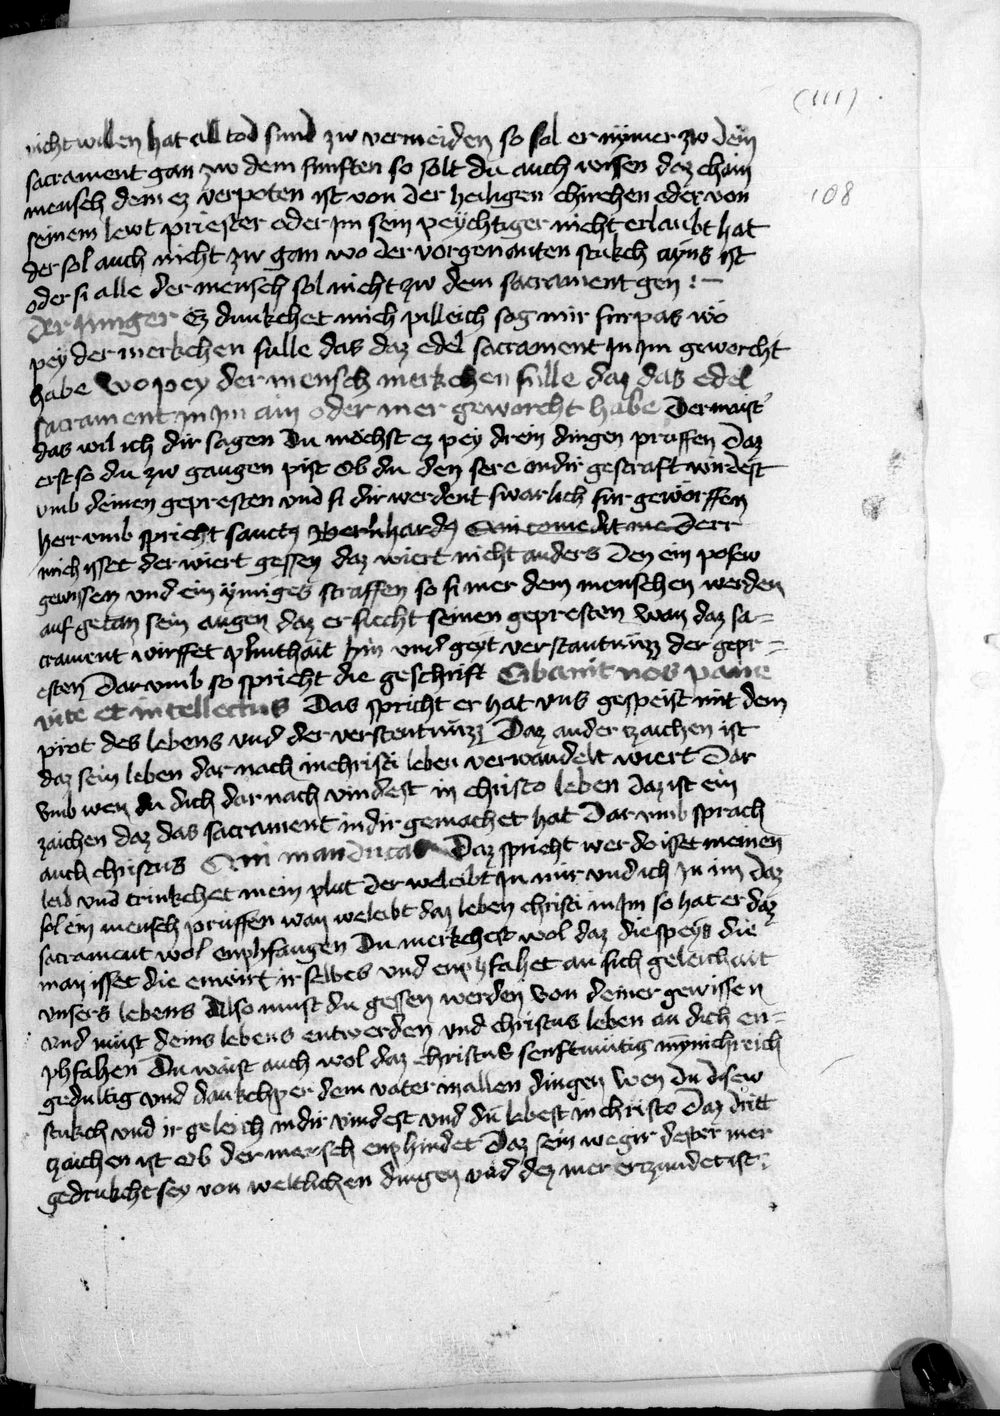 (111)
108
nicht willen hat all tod sund zw vermeiden so sol er nymer zw dem
sacrament gan zw dem funften so solt du auch wissen daz chain
mensch dem ez verpoten ist von der heiligen chirchen oder von
seinem lewt priester oder im sein peychtiger nicht erlaubt hat
der sol auch nicht zw gan wo der vorgenanten stukch ayns ist
oder si alle der mensch sol nicht zw dem sacrament gen :–
Der junger Ez dunkchet mich pilleich sag mir furpas wo
pey der merkchen sulle das daz edel sacrament in im geworcht
habe Wo pey der mensch merkchen sulle daz das edel
sacrament in im ain oder mer geworcht habe Der maist
das wil ich dir sagen Du mochst ez pey drein dingen pruffen Daz
erst so du zw gangen pist Ob du den sere in dir gestraft wirdest
vmb deinen gepresten vnd si dir werdent swarlich fur geworffen
herr vmb spricht sanctus Bernhardus Qui comedit me Der
mich isset der wiert gessen daz wiert nicht anders den ein posew
gewissen vnd ein ynniges straffen so si mer dem menschen werden
auf getan sein augen daz er siecht seinen gepresten wan daz sa=
crament wirffet plinthait hin vnd geyt verstantnuzz der gepr=
esten Dar vmb so spricht die geschrift Cibavit nos pane
vite et intellectus Das spricht er hat vns gespeist mit dem
prot des lebens vnd der verstentnuzz Daz ander tzaichen ist
daz sein leben dar nach in christi leben verwandelt wiert Dar
vmb wen du dich dar nach vindest in christo leben daz ist ein
zaichen daz das sacrament in dir gemachet hat Dar vmb sprach
auch christus Qui manducat Daz spricht wer do isset meinen
leib vnd trinkchet mein plut der weleibt in mir vnd ich in im Daz
sol ein mensch pruffen wan weleibt daz leben christi in im so hat er daz
sacrament wol enphfangen Du merkchest wol daz die speys die
man isset die ir selbes vnd enphfahet an sich geleichait
vnsers lebens Also must du gessen werden von deiner gewissen
vnd must deins lebens entwerden vnd christus leben an dich en=
phfahen Du waist auch wol daz christus senftmutig mynichreich
gedultig vnd dankchper dem vater in allen dingen Wen du disew
stukch vnd ir geleich in dir vindest vnd du lebest in christo Daz dritt
tzaichen ist Ob der mensch enphindet Daz sein begir dester mer
gedrukcht sey von weltlichen dingen vnd dez mer entzundet ist :